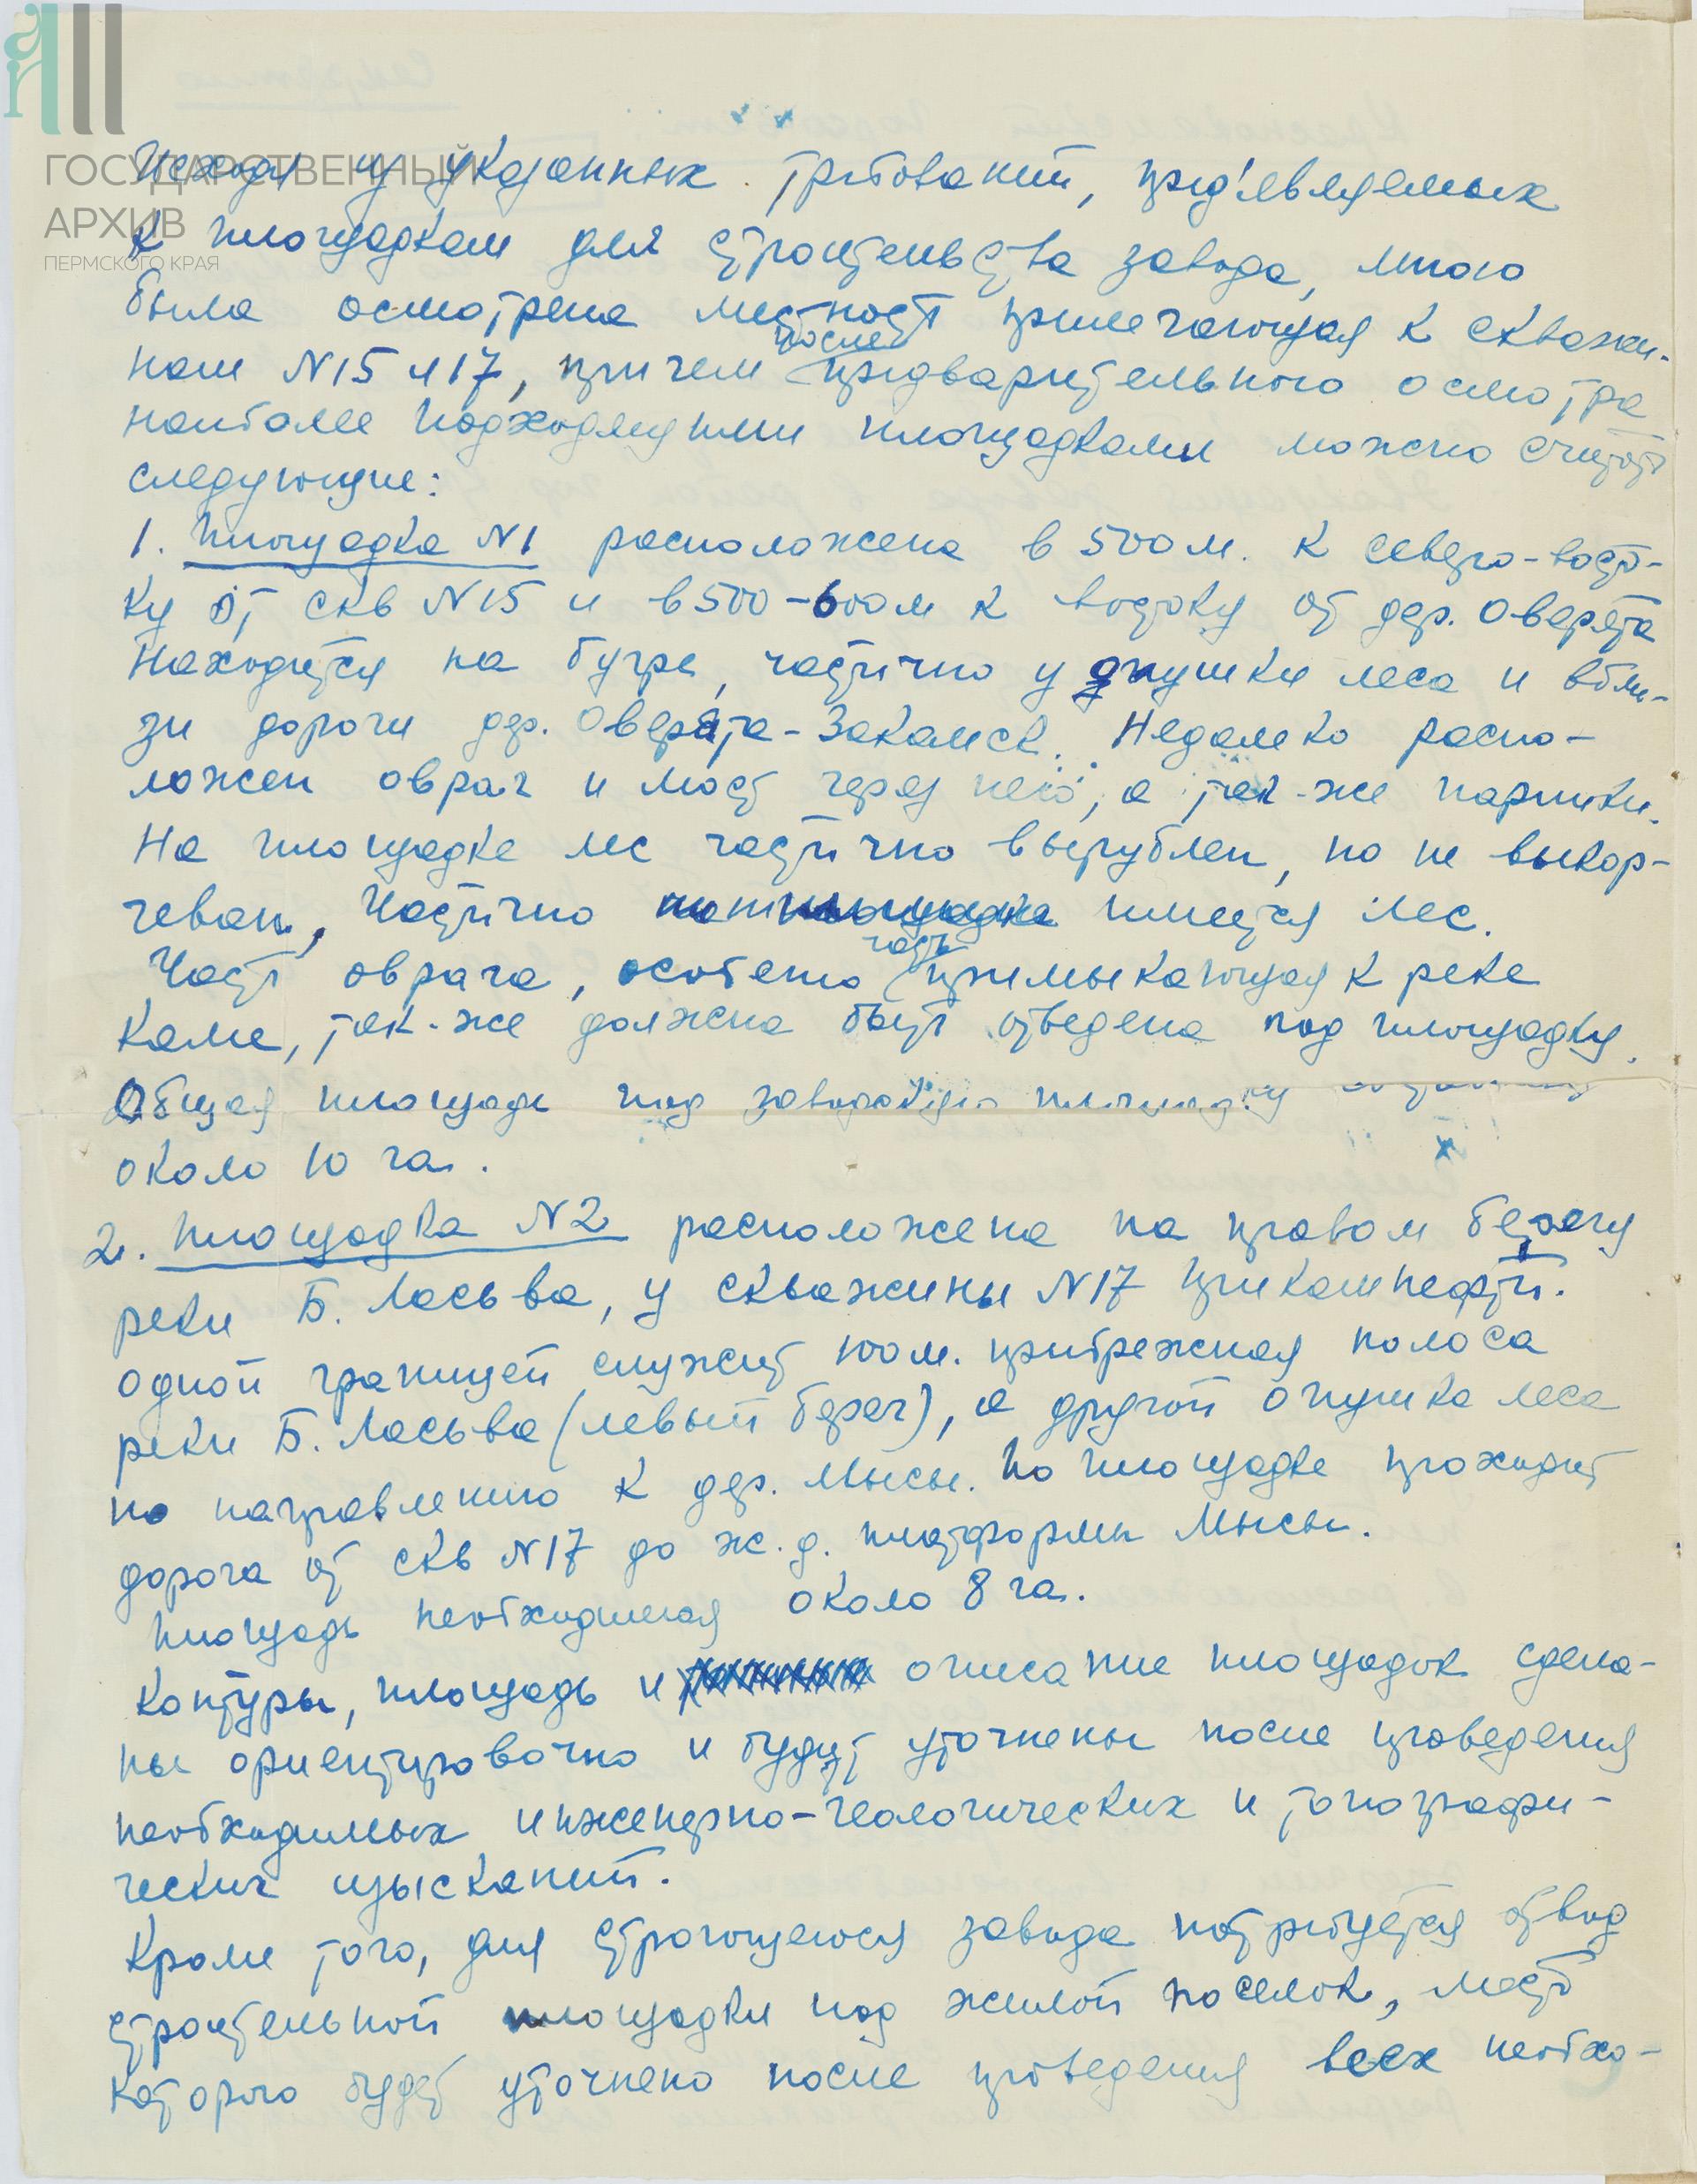 ГОСУДАРСТВЕННЫЙ
АРХИВ
ПЕРМСКОГО КРАЯ
Исходя из указанных требований, пред'являемых
к площадкам для строительства завода, мною
была осмотрена местность прилегающая к скважи-
нам N15 и 17, причем после предварительного осмотра
наиболее подходящими площадками можно считать
следующие:
1. Площадка N1 расположена в 500 м. к северо-восто-
ку от скв N15 и в 500-600 м к востоку от дер. Оверята
Находится на бугре, частично у опушки леса и вбли-
зи дороги дер. Оверята-Закамск. Недалеко распо-
ложен овраг и мост через него, а так-же парники.
На площадке лес частично вырублен, но не выкор-
чеван, частично имеется лес.
Часть оврага, особено часть примыкающая к реке
Каме, так-же должна быть отведена под площадку.
Общая площадь под заводскую площадку
около 10 га.
2. Площадка N2 расположена на правом берегу
реки Б. Ласьва, у скважины N17 Прикамнефти.
Одной границей служит 100 м. прибрежная полоса
реки Б. Ласьва (левый берег), а другой опушка леса
по направлению к дер. Мысы. По площадке проходит
дорога от скв N17 до ж.д. платформы Мысы.
Площадь необходимая около 8 га.
Контуры, площадь и описание площадок сдела-
ны ориентировочно и будут уточнены после проведения
необходимых инженерно-геологических и топографи-
ческих изысканий.
Кроме того, для строющегося завода потребуется отвод
строительной площадки под жилой поселок, место
которого будет уточнено после проведения всех необхо-